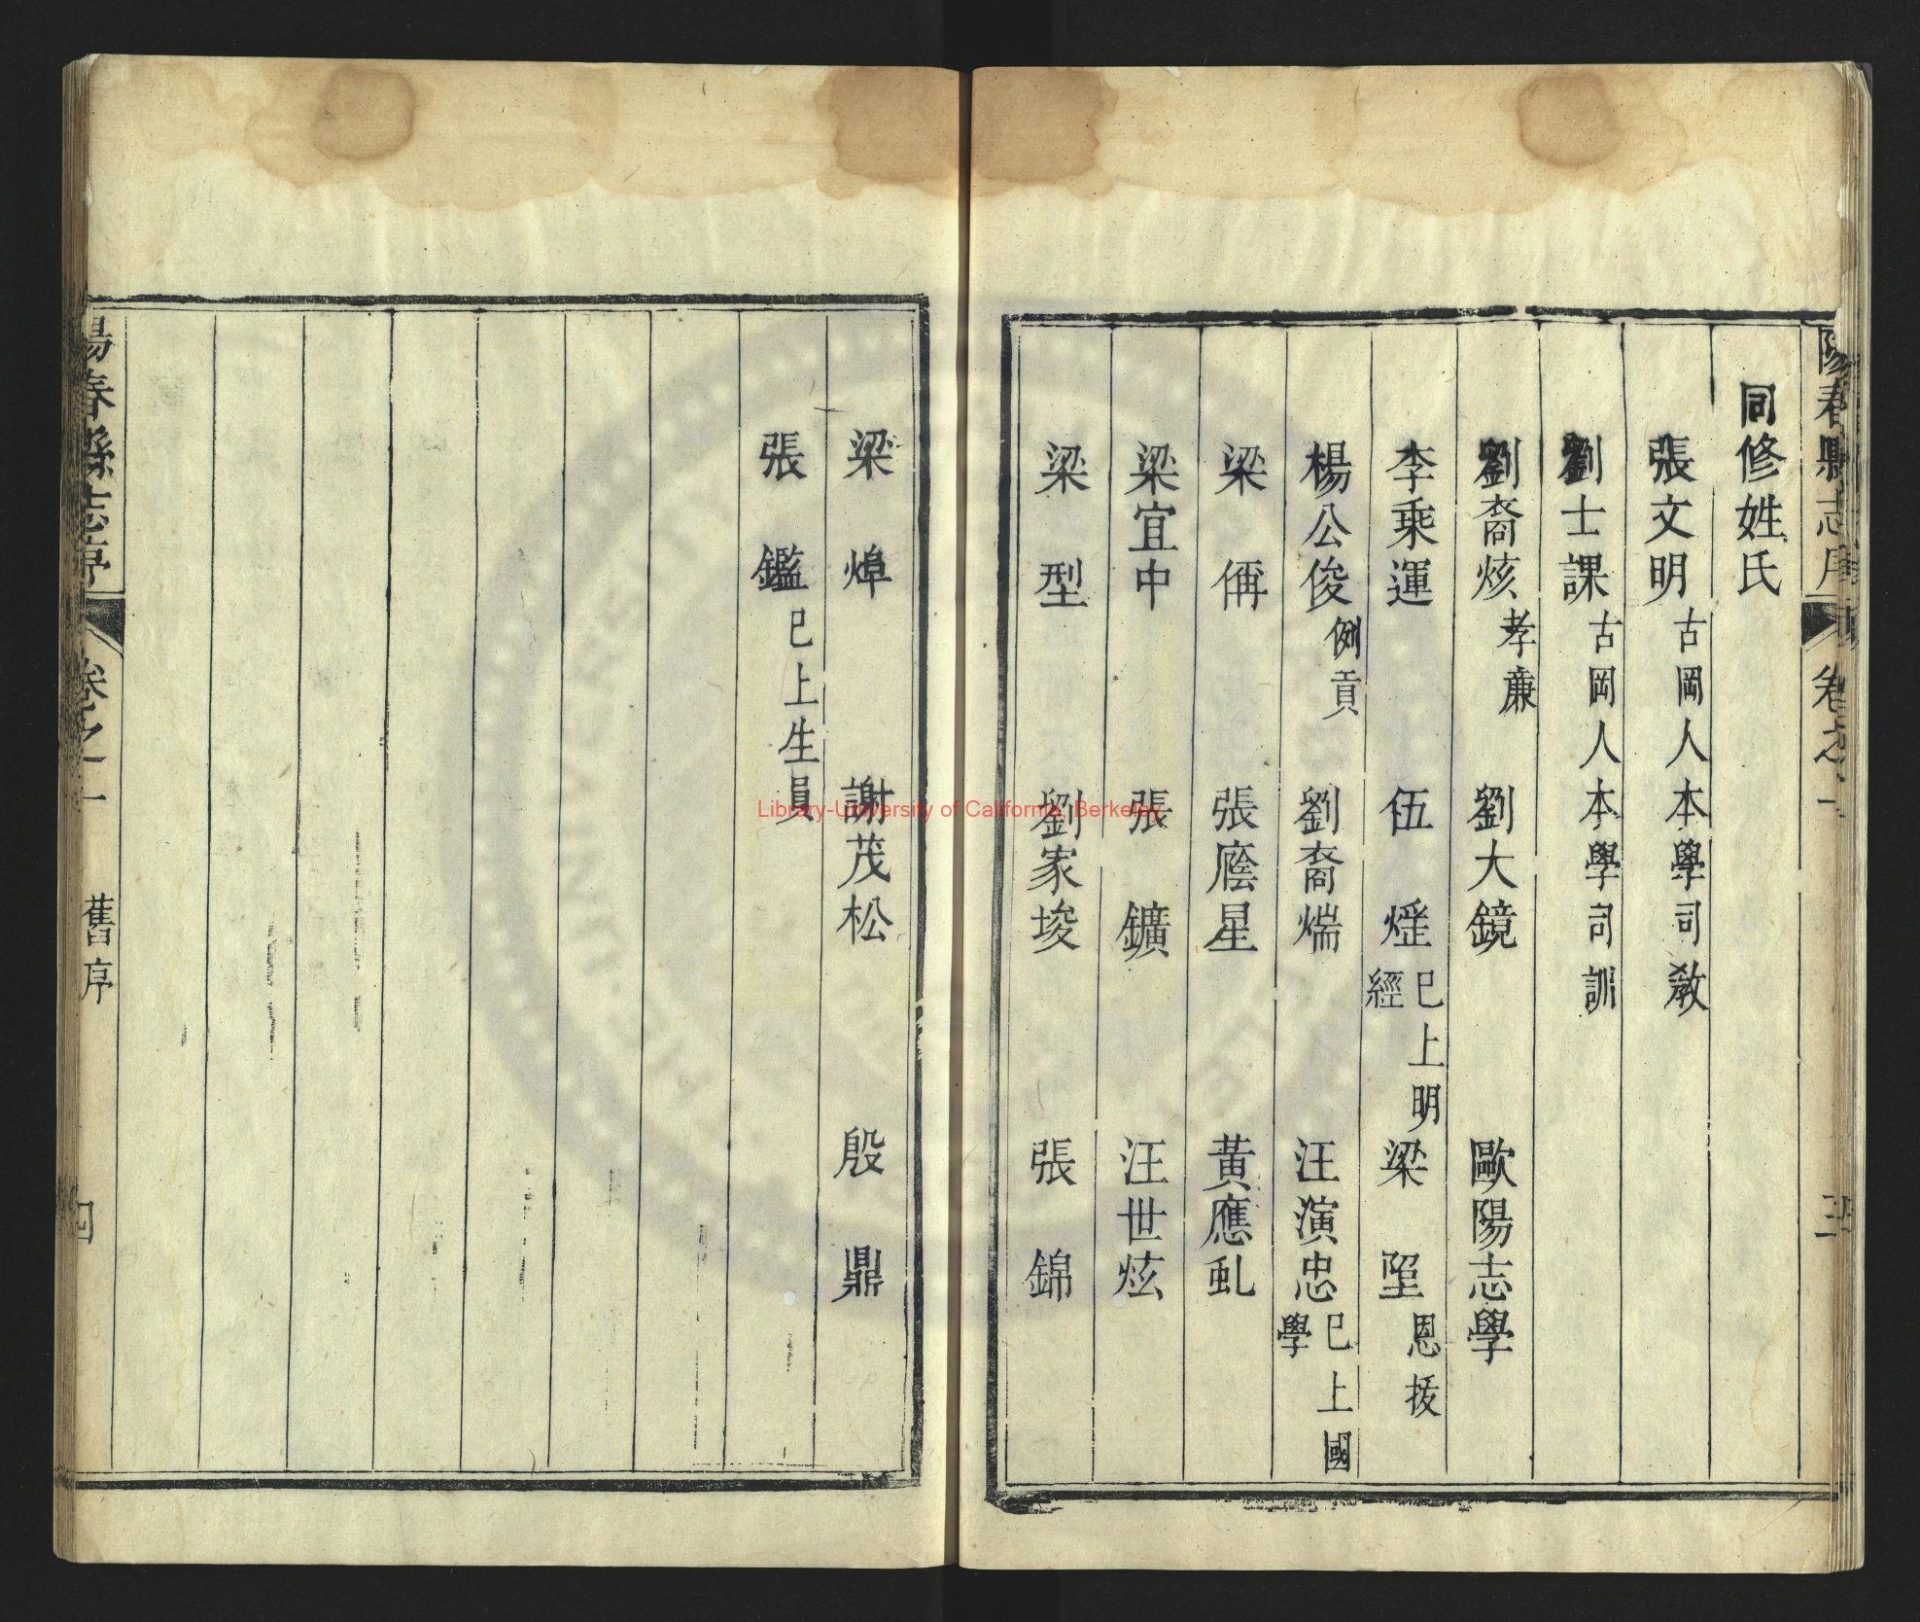 陽春縣志序 卷之一 三
同修姓氏
張文明 古岡人本學司教
劉士課 古岡人本學司訓
劉裔炫 孝廉 劉大鏡 歐陽志學
李乘運 伍烴 巳上明經 梁垩 恩拔
楊公俊 例貢 劉裔煓 汪演忠 巳上國學
梁偁 張廕星 黃應虬
梁宜中 張鑛 汪世炫
梁型 劉家埈 張錦
梁焯 謝茂松 殷鼎
張鑑 巳上生員
陽春縣志序 卷之一 舊序 四
Library-University of California, Berkeley